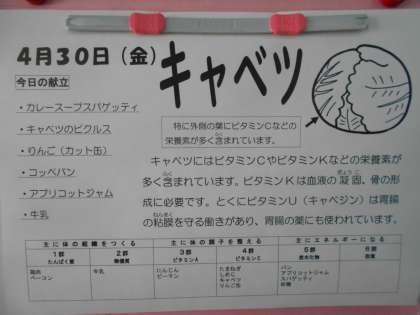 4月30日（金）
キャベツ
今日の献立
・カレースープスパゲッティ
・キャベツのピクルス
・りんご（カット缶）
・コッペパン
・アプリコットジャム
・牛乳
特に外側の葉にビタミンCなどの
栄養素が多く含まれています。
キャベツにはビタミンCやビタミンKなどの栄養素が
多く含まれています。ビタミンKは血液の凝固、骨の形
成に必要です。とくにビタミンU（キャベジン）は胃腸
の粘膜を守る働きがあり、胃腸の薬にも使われています。
主に体の組織をつくる 主に体の調子を整える 主にエネルギーになる
1群 2群 3群 4群 5群 6群
たんぱく質 無機質 ビタミンA ビタミンC 炭水化物 脂質
鶏肉 牛乳 にんじん たまねぎ パン
ベーコン ピーマン しめじ アプリコットジャム
キャベツ スパゲッティ
りんご缶 砂糖